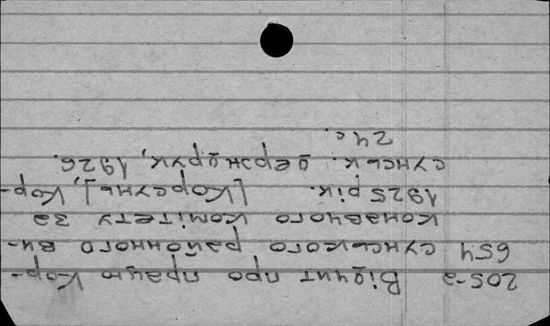 205-а Відчит про працю Кор-
654 сунського районного ви-
конавчого комітету за
1925 рік. [Корсунь], Кор-
сунськ. держдрук, 1926.
24с.